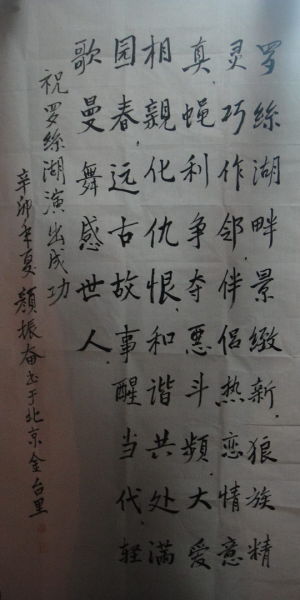 罗丝湖畔景緻新.狼族精
灵巧作邻.伴侣热恋情意
真.蝇利争夺恶斗频.大爱
相亲化仇恨.和谐共处满
园春.远古故事醒当代.轻
歌曼舞感世人.
祝罗丝湖演出成功
辛卯年夏颜振奋书于北京金台里